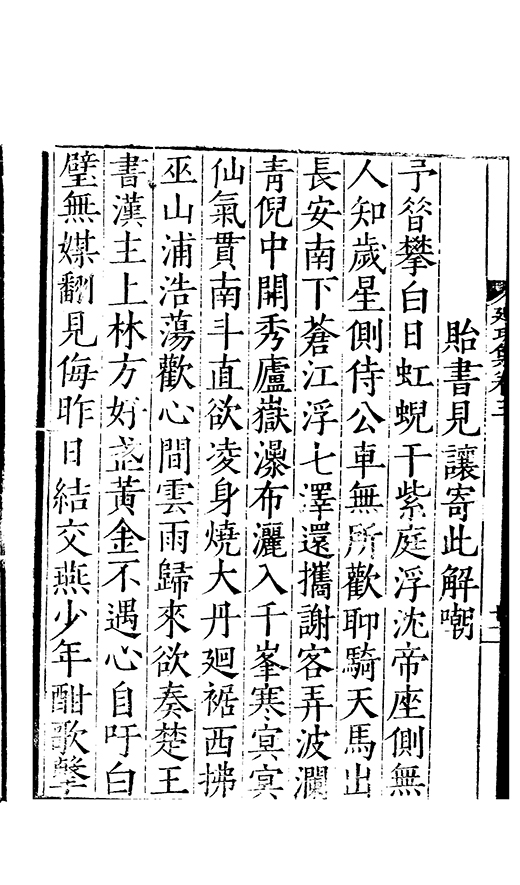 集卷三
貽書見讓寄此解嘲
予昝攀白日虹蜺干紫庭浮沈帝座側無
人知歲星側侍公車無所歡聊騎天馬出
長安南下蒼江浮七澤還攜謝客弄波瀾
青倪中開秀廬嶽瀑布灑入千峯寒冥冥
仙氣貫南斗直欲凌身燒大丹廻裾西拂
巫山浦浩蕩歡心間雲雨歸來欲奏楚王
書漢主上林方好黃金不遇心自吁白
璧無媒翻見侮昨日結交燕少年酣歌擊